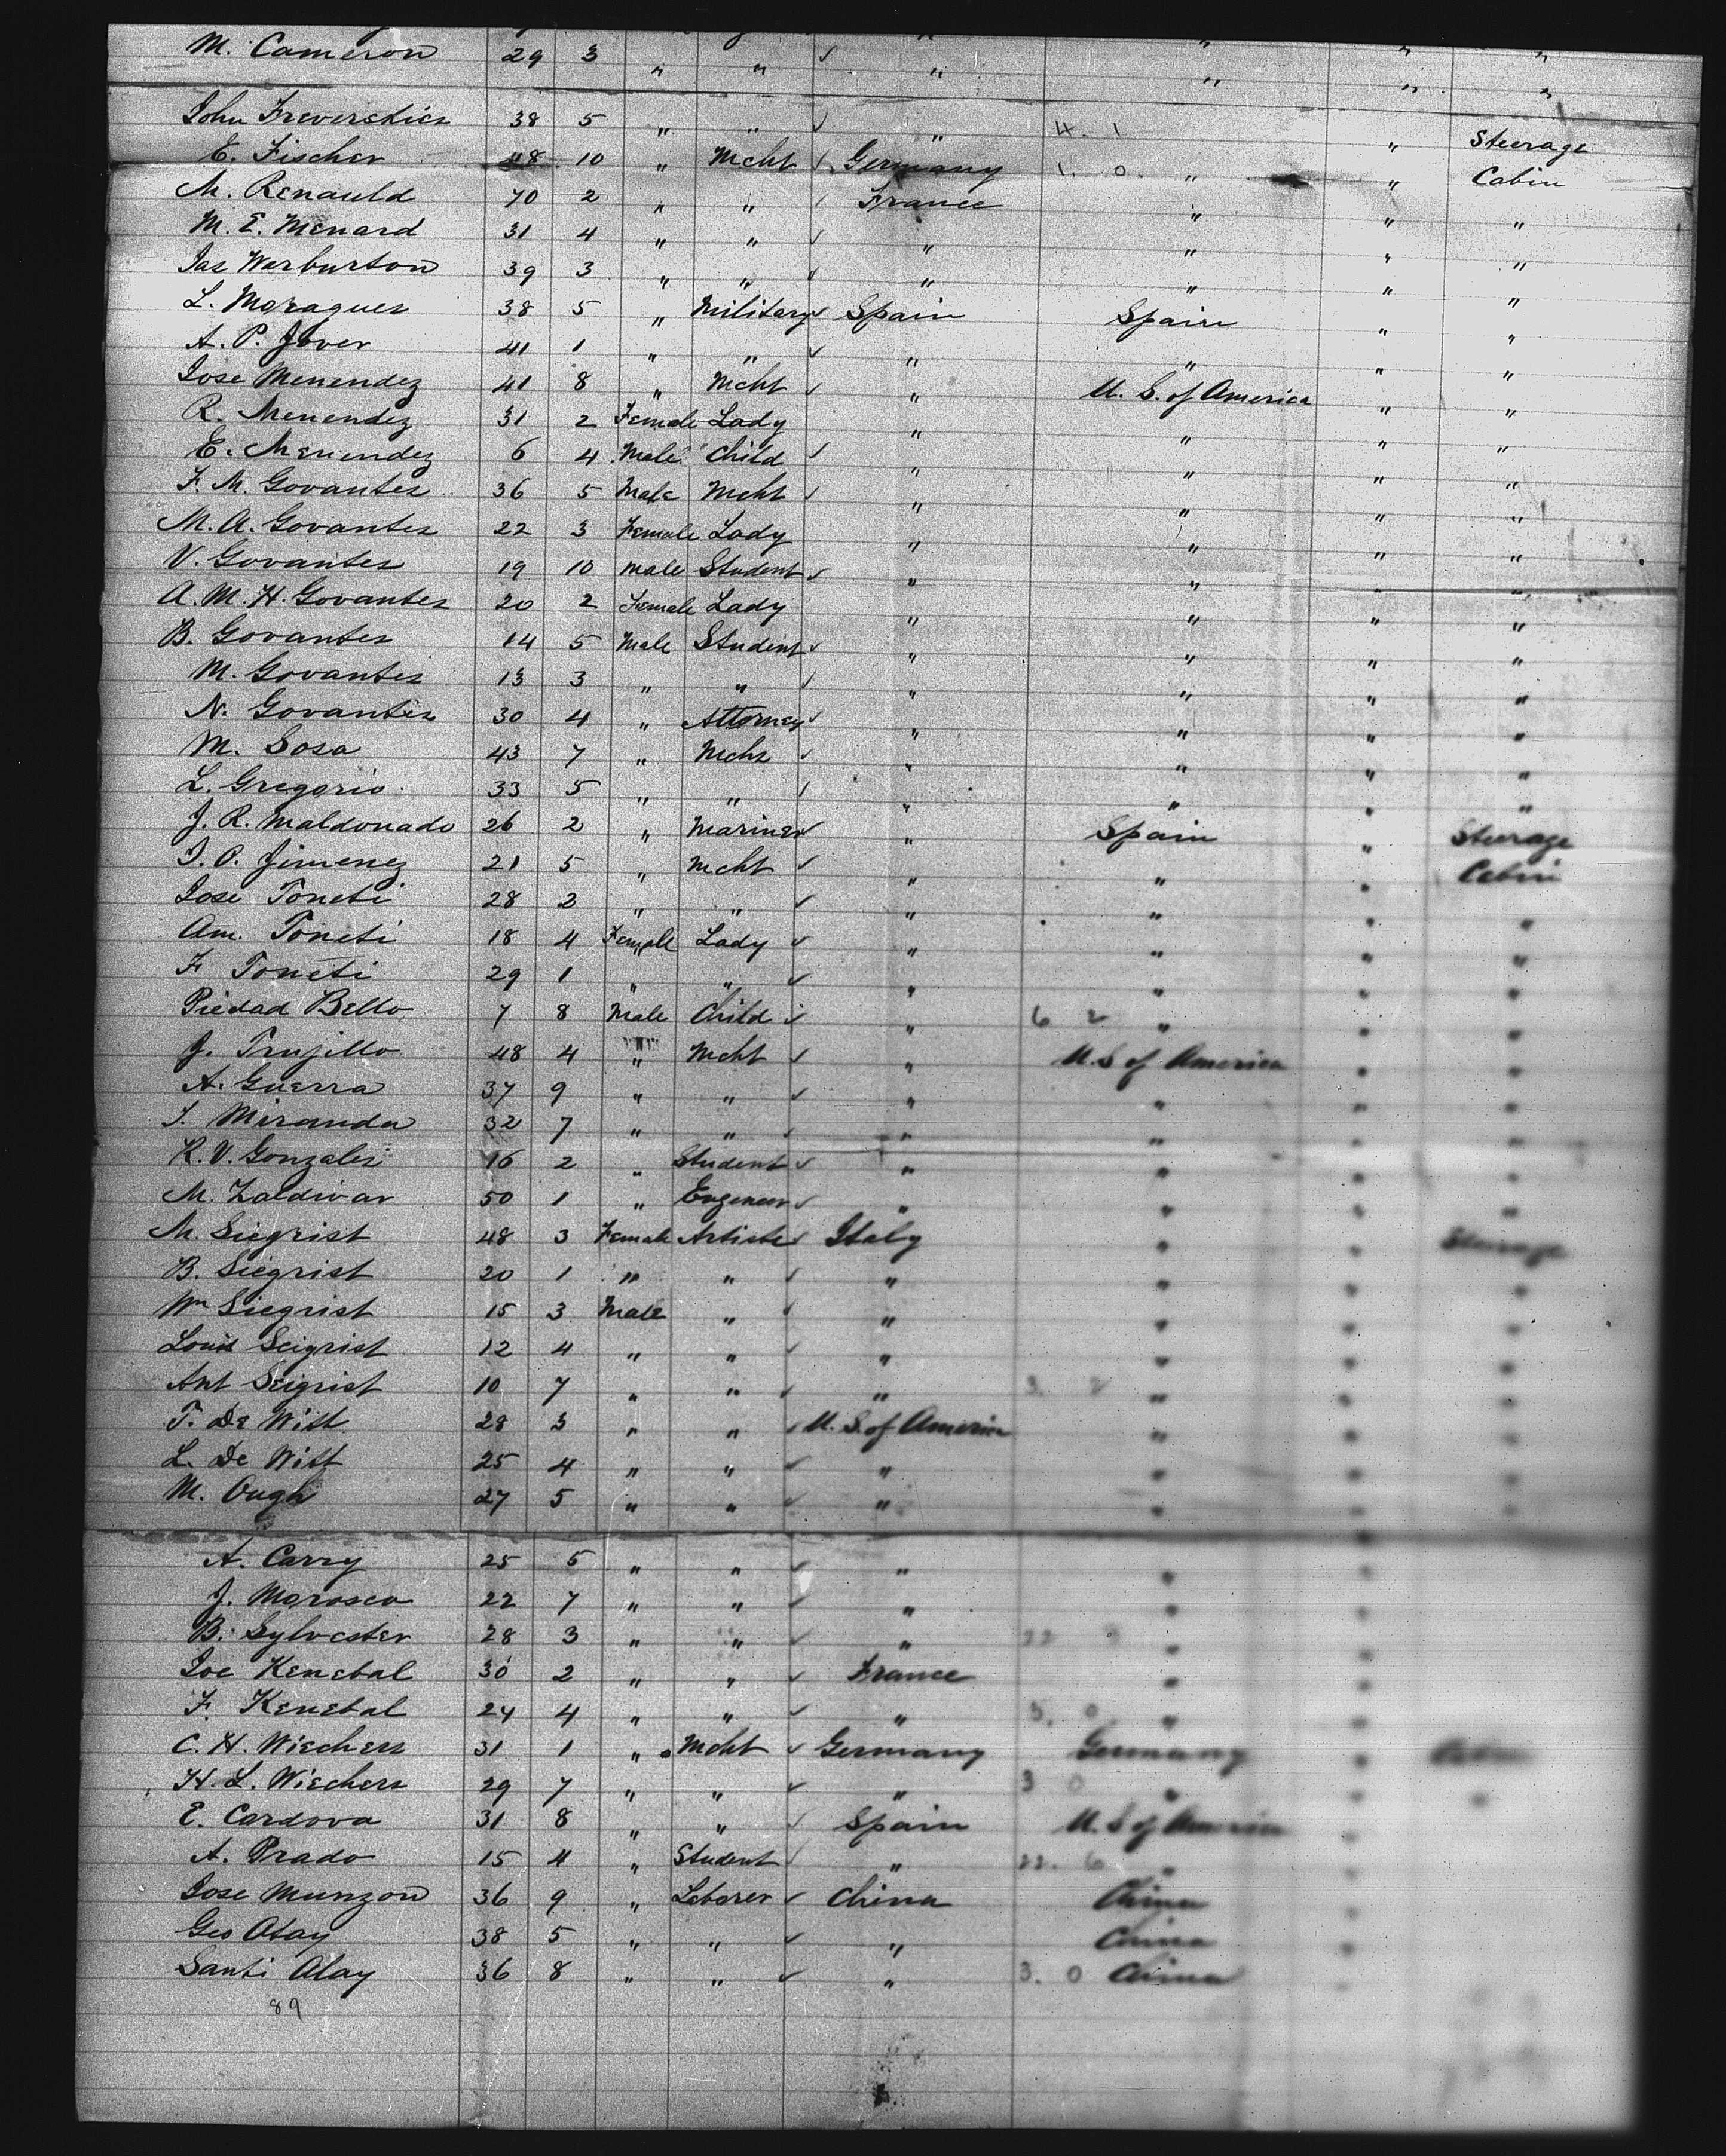 M. Cameron 29 3 " " ✓ " " " "
John Freverskies 38 5 " " ✓ " 4. 1 " Steerage
E. Fischer 48 10 " Mcht ✓ Germany 1. 0. " " Cabin
M. Renauld 70 2 " " ✓ France " " "
M. E. Menard 31 4 " " ✓ " " " "
Jas Warburton 39 3 " " ✓ " " " "
L. Moragues 38 5 " Military ✓ Spain Spain " "
A. P. Jover 41 1 " " ✓ " " " "
Jose Menendez 41 8 " Mcht ✓ " U. S. of America " "
R. Menendez 31 2 Female Lady " " " "
E. Menendez 6 4 Male Child ✓ " " " "
F. M. Govantes 36 5 Male Mcht ✓ " " " "
M. A. Govantes 22 3 Female Lady " " " "
V. Govantes 19 10 Male Student ✓ " " " "
A. M. H. Govantes 20 2 Female Lady " " " "
B. Govantes 14 5 Male Student ✓ " " " "
M. Govantes 13 3 " " ✓ " " " "
N. Govantes 30 4 " Attorney ✓ " " " "
M. Sosa 43 7 " Mcht ✓ " " " "
L. Gregorio 33 5 " " ✓ " " " "
J. R. Maldonado 26 2 " Mariner ✓ " Spain " Steerage
J. O. Jimenez 21 5 " Mcht ✓ " " " Cabin
Jose Toneti 28 2 " " ✓ " " " "
Am. Toneti 18 4 Female Lady ✓ " " " "
F Toneti 29 1 " " ✓ " " " "
Piedad Bello 7 8 Male Child ✓ " 6 2 " " "
J. Trujillo 48 4 " Mcht ✓ " U. S of America " "
A. Guerra 37 9 " " ✓ " " " "
J. Miranda 32 7 " " ✓ " " " "
R. V. Gonzales 16 2 " Student ✓ " " " "
M. Zaldivar 50 1 " Engeneer ✓ " " " "
M. Siegrist 48 3 Female Artiste ✓ Italy " " Steerage
B. Siegrist 20 1 " " ✓ " " " "
Wm Siegrist 15 3 Male " ✓ " " " "
Louis Seigrist 12 4 " " ✓ " " " "
Ant Seigrist 10 7 " " ✓ " 3. 2 " " "
T. De Witt 28 3 " " ✓ U. S. of America " " "
L. De Witt 25 4 " " ✓ " " " "
M. Ough 27 5 " " ✓ " " " "
A. Carry 25 5 " " ✓ " " " "
J. Morosco 22 7 " " ✓ " " " "
B. Sylvester 28 3 " " ✓ " 22 " " "
Joe Kenebal 30 2 " " ✓ France " " "
F. Kenebal 24 4 " " ✓ " 5. 0 " " "
C. H. Wiechers 31 1 " Mcht ✓ Germany Germany " Cabin
H. L. Wiechers 29 7 " " ✓ " 3 0 " " "
E. Cordova 31 8 " " ✓ Spain U. S of America "
A. Prado 15 4 " Student ✓ " 22. 6 " "
Jose Munzon 36 9 " Laborer ✓ China China "
Geo Atay 38 5 " " ✓ " China "
Santi Alay 36 8 " " ✓ " 3. 0 China "
89